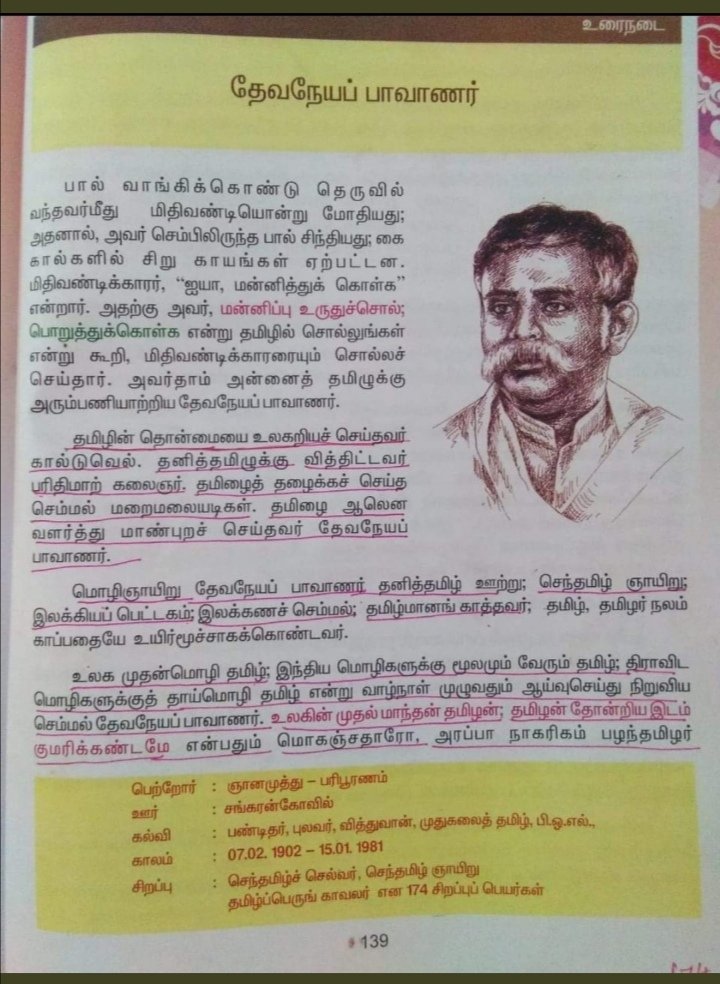 உரைநடை
தேவநேயப் பாவாணர்
பால் வாங்கிக்கொண்டு தெருவில்
வந்தவர்மீது மிதிவண்டியொன்று மோதியது;
அதனால், அவர் செம்பிலிருந்த பால் சிந்தியது; கை
கால்களில் சிறு காயங்கள் ஏற்பட்டன.
மிதிவண்டிக்காரர், “ஐயா, மன்னித்துக் கொள்க”
என்றார். அதற்கு அவர், மன்னிப்பு உருதுச்சொல்;
பொறுத்துக்கொள்க என்று தமிழில் சொல்லுங்கள்
என்று கூறி, மிதிவண்டிக்காரரையும் சொல்லச்
செய்தார். அவர்தாம் அன்னைத் தமிழுக்கு
அரும்பணியாற்றிய தேவநேயப் பாவாணர்.
தமிழின் தொன்மையை உலகறியச் செய்தவர்
கால்டுவெல். தனித்தமிழுக்கு வித்திட்டவர்
பரிதிமாற் கலைஞர். தமிழைத் தழைக்கச் செய்த
செம்மல் மறைமலையடிகள். தமிழை ஆலென
வளர்த்து மாண்புறச் செய்தவர் தேவநேயப்
பாவாணர்.
மொழிஞாயிறு தேவநேயப் பாவாணர் தனித்தமிழ் ஊற்று; செந்தமிழ் ஞாயிறு;
இலக்கியப் பெட்டகம்; இலக்கணச் செம்மல்; தமிழ்மானங் காத்தவர்; தமிழ், தமிழர் நலம்
காப்பதையே உயிர்மூச்சாகக்கொண்டவர்.
உலக முதன்மொழி தமிழ்; இந்திய மொழிகளுக்கு மூலமும் வேரும் தமிழ்; திராவிட
மொழிகளுக்குத் தாய்மொழி தமிழ் என்று வாழ்நாள் முழுவதும் ஆய்வுசெய்து நிறுவிய
செம்மல் தேவநேயப் பாவாணர். உலகின் முதல் மாந்தன் தமிழன்; தமிழன் தோன்றிய இடம்
குமரிக்கண்டமே என்பதும் மொகஞ்சதாரோ, அரப்பா நாகரிகம் பழந்தமிழர்
பெற்றோர் : ஞானமுத்து – பரிபூரணம்
ஊர் : சங்கரன்கோவில்
கல்வி : பண்டிதர், புலவர், வித்துவான், முதுகலைத் தமிழ், பி.ஓ.எல்.,
காலம் : 07.02. 1902 – 15.01. 1981
சிறப்பு : செந்தமிழ்ச் செல்வர், செந்தமிழ் ஞாயிறு
தமிழ்ப்பெருங் காவலர் என 174 சிறப்புப் பெயர்கள்
139